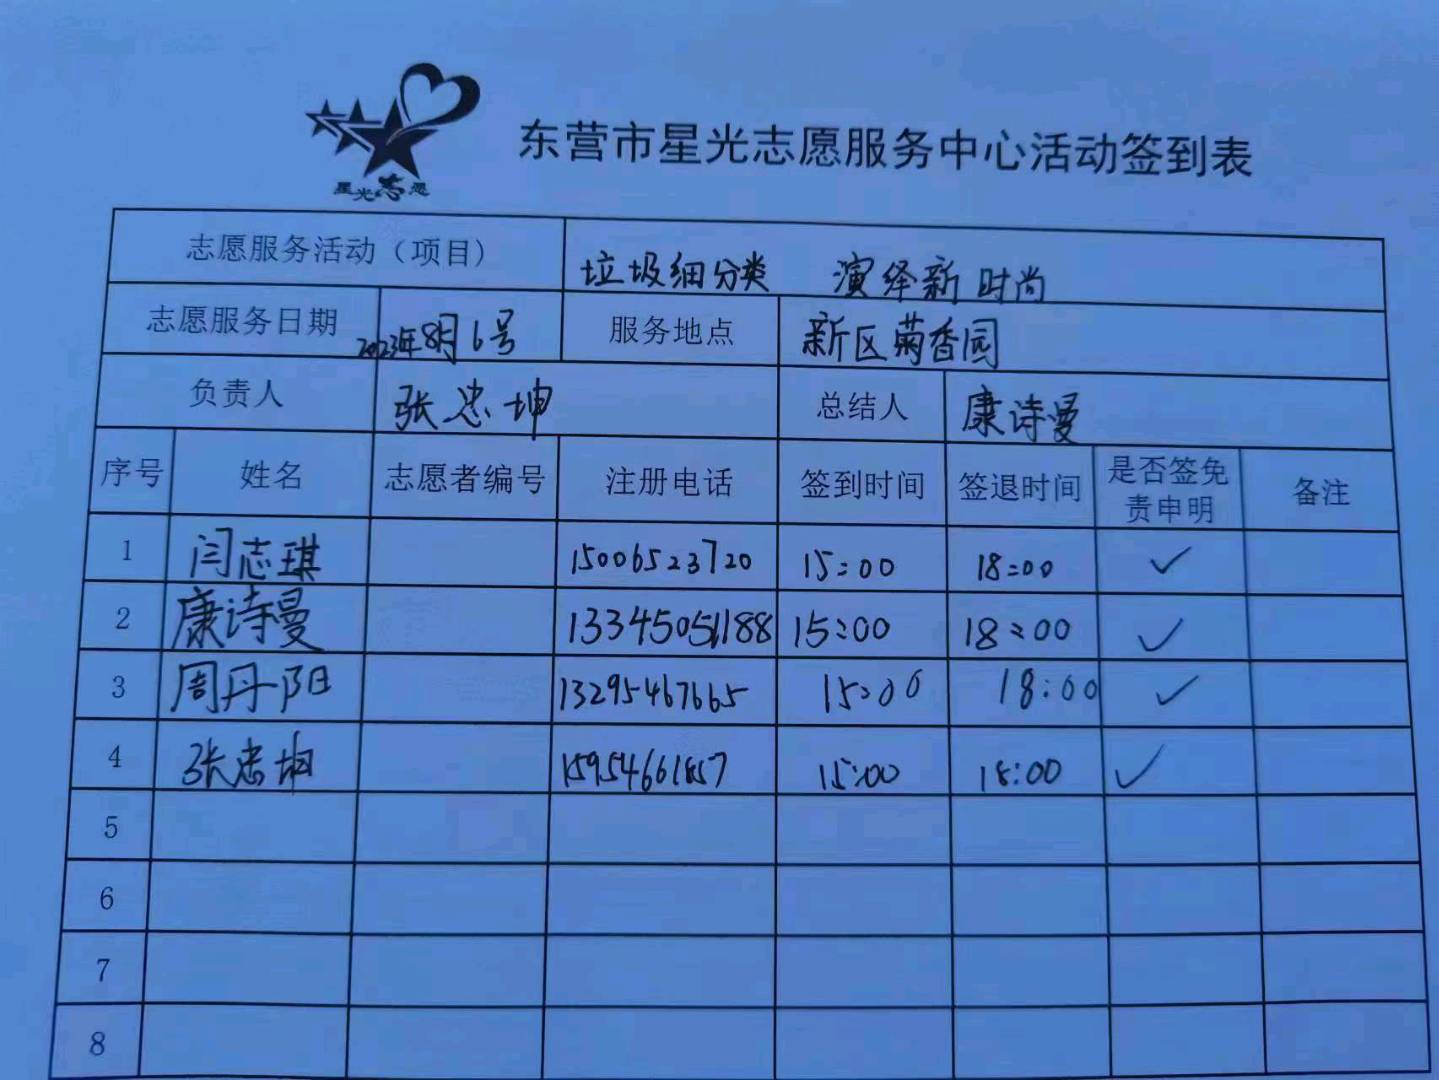 星光志愿
东营市星光志愿服务中心活动签到表
志愿服务活动（项目） 垃圾细分类 演绎新时尚
志愿服务日期 2023年8月6号 服务地点 新区菊香园
负责人 张忠坤 总结人 康诗曼
序号 姓名 志愿者编号 注册电话 签到时间 签退时间 是否签免责申明 备注
1 闫志琪 15006523720 15:00 18:00 ✓
2 康诗曼 13345051188 15:00 18:00 ✓
3 周丹阳 13295467665 15:00 18:00 ✓
4 张忠坤 15954661857 15:00 18:00 ✓
5
6
7
8